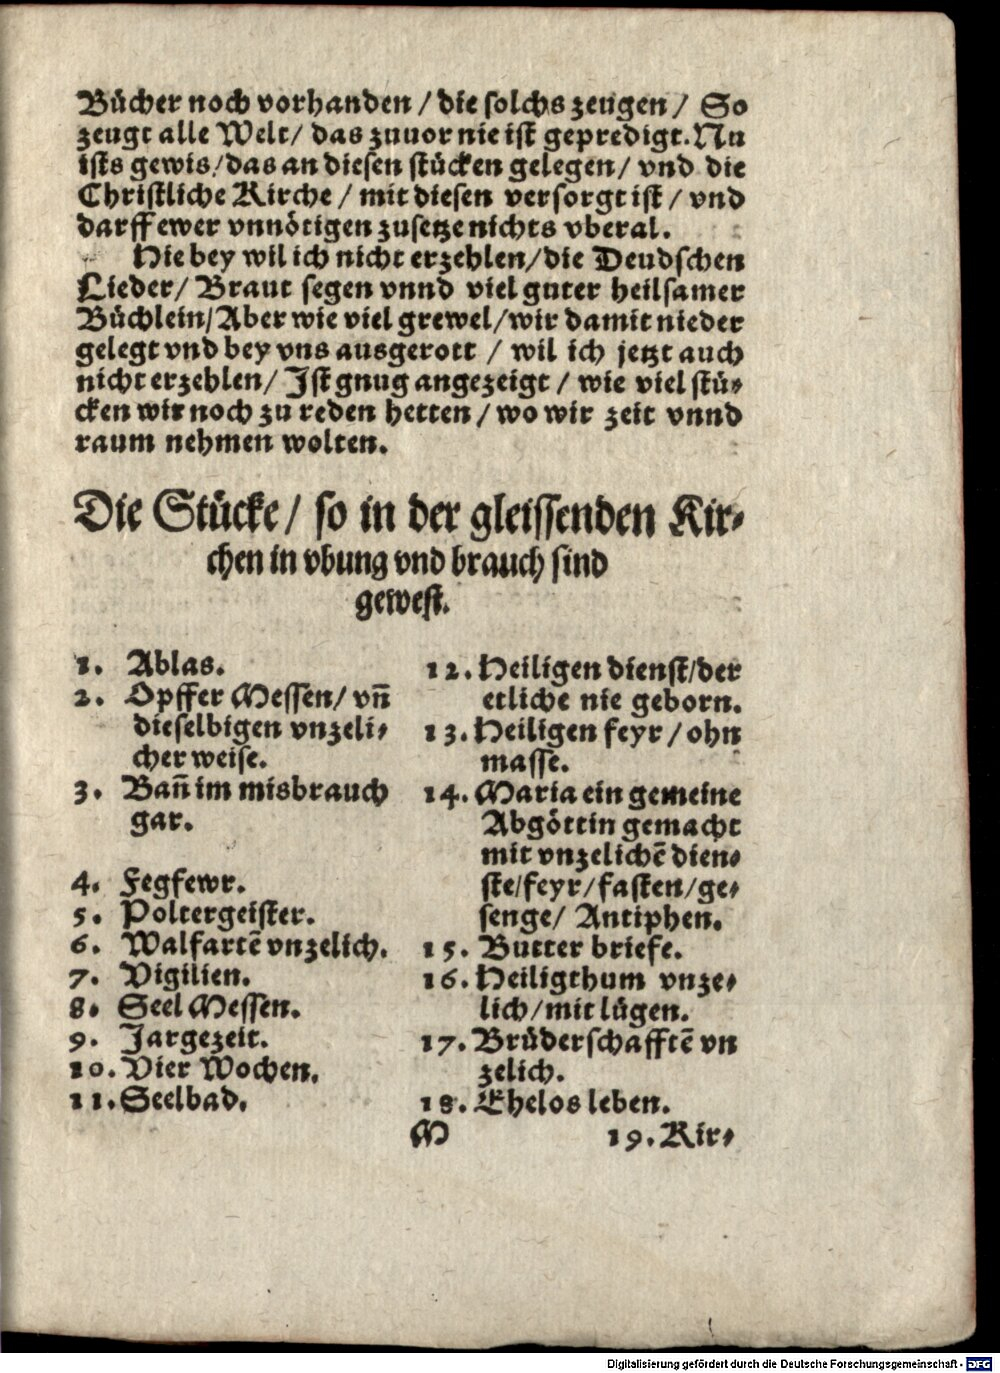 Bücher noch vorhanden / die solchs zeugen / So
zeugt alle Welt / das zuuor nie ist gepredigt. Nu
ists gewis / das an diesen stücken gelegen / vnd die
Christliche Kirche / mit diesen versorgt ist / vnd
darff ewer vnnötigen zusetze nichts vberal.
Hie bey wil ich nicht erzehlen / die Deudschen
Lieder / Braut segen vnnd viel guter heilsamer
Büchlein / Aber wie viel grewel / wir damit nieder
gelegt vnd bey vns ausgerott / wil ich jetzt auch
nicht erzehlen / Ist gnug angezeigt / wie viel stü-
cken wir noch zu reden hetten / wo wir zeit vnnd
raum nehmen wolten.
Die Stücke / so in der gleissenden Kir-
chen in vbung vnd brauch sind
gewest.
1. Ablas.
2. Opffer Messen / vñ
dieselbigen vnzeli-
cher weise.
3. Bañ im misbrauch
gar.
4. Fegfewr.
5. Poltergeister.
6. Walfartẽ vnzelich.
7. Vigilien.
8. Seel Messen.
9. Jargezeit.
10. Vier Wochen.
11. Seelbad.
12. Heiligen dienst / der
etliche nie geborn.
13. Heiligen feyr / ohn
masse.
14. Maria ein gemeine
Abgöttin gemacht
mit vnzelichẽ dien-
ste / feyr / fasten / ge-
senge / Antiphen.
15. Butter briefe.
16. Heiligthum vnze-
lich / mit lügen.
17. Brüderschafftẽ vn
zelich.
18. Ehelos leben.
M 19. Kir-
Digitalisierung gefördert durch die Deutsche Forschungsgemeinschaft - DFG